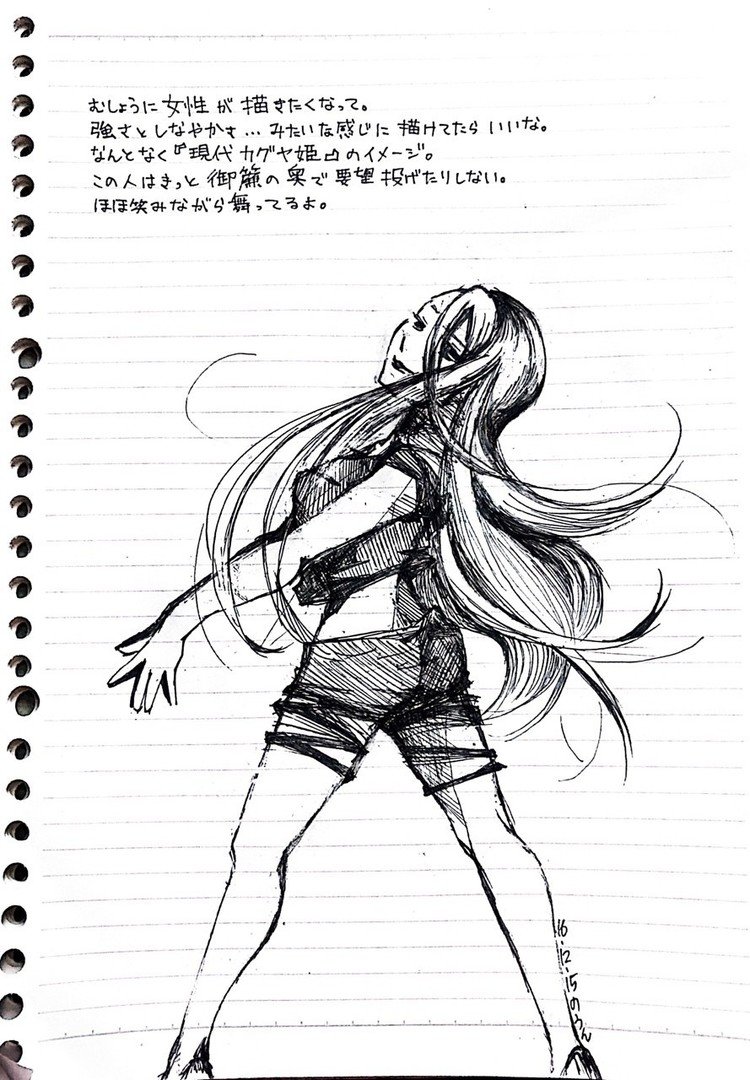 むしょうに女性が描きたくなって。
強さとしなやかさ…みたいな感じに描けてたらいいな。
なんとなく『現代カグヤ姫』のイメージ。
この人はきっと御簾の奥で要望投げたりしない。
ほほ笑みながら舞ってるよ。
16.12.15のうん